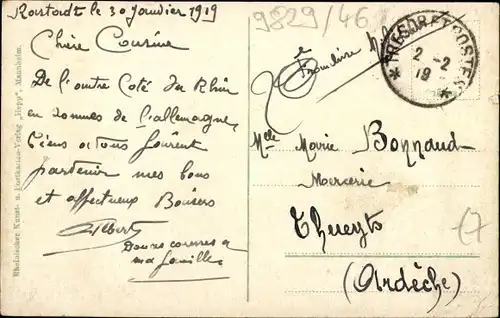 le 30 Janvier 1919
Chère Cousine
De l'autre Coté du Rhin
en sommes de l'allemagne,
Viens à tous
parvenir mes bons
et affectueux Baisers
Albert
Douces caresses a
ma famille
Rheinischer Kunst- u. Postkarten-Verlag "Hepp", Mannheim.
9829/46
TRESOR ET POSTES
2 -2
19
Melle Marie Bonnaud
Mercerie
Thueyts
(Ardèche)